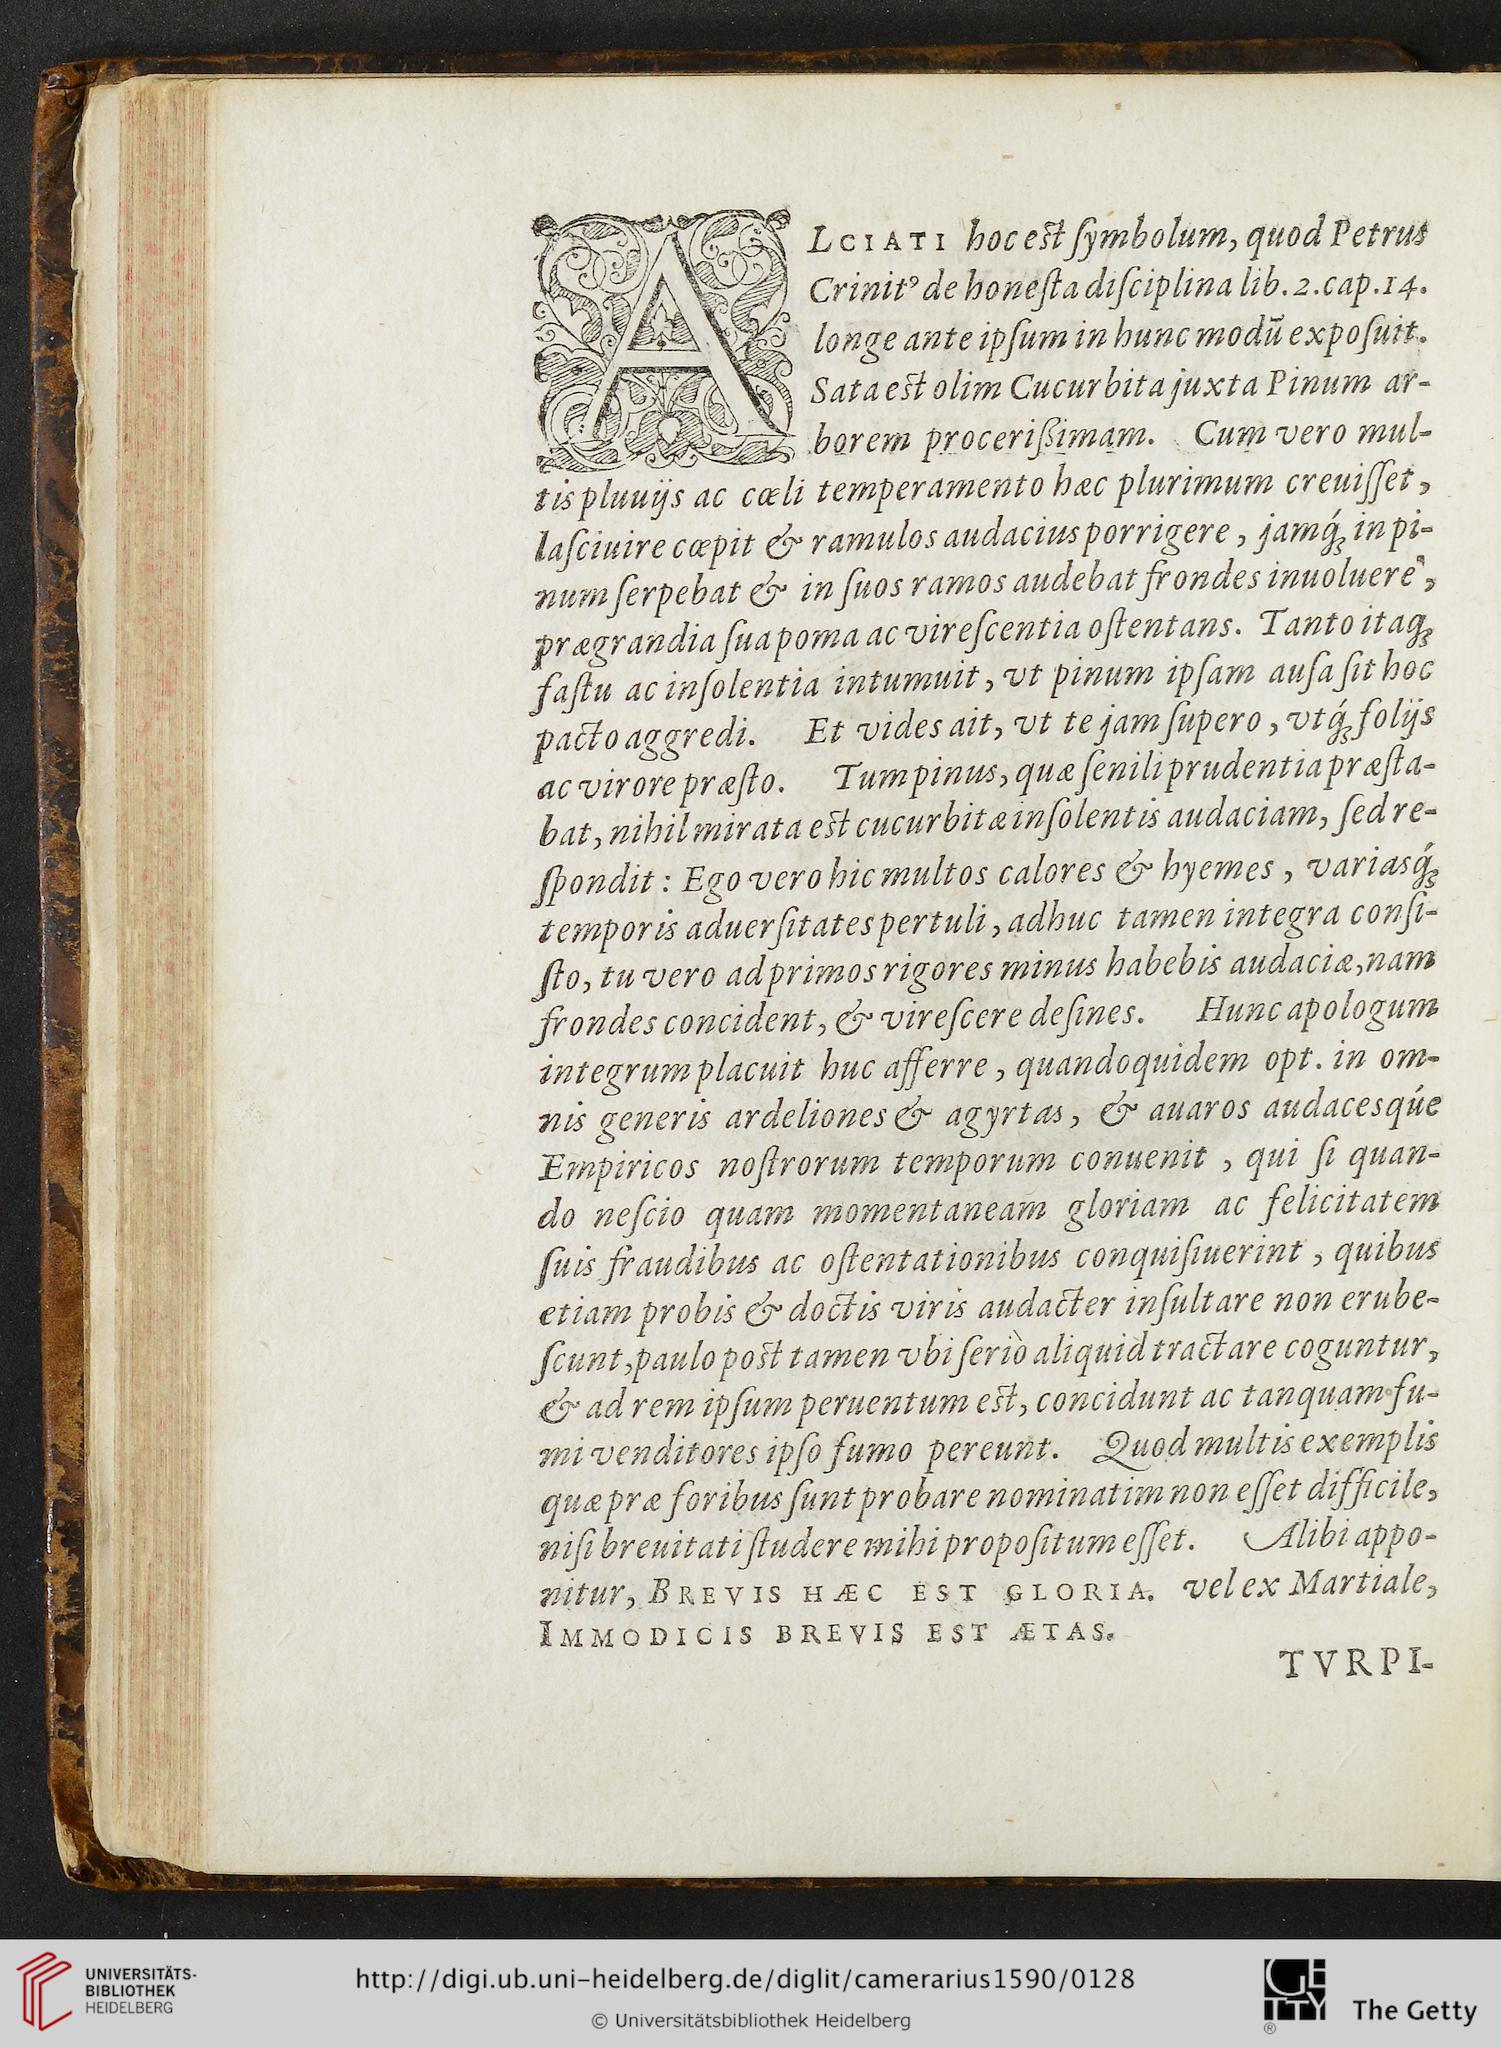 ALCIATI hoc est ſymbolum, quod Petrus
Crinitꝰ de honeſta diſciplina lib. 2. cap. 14.
longe ante ipſum in hunc modū expoſuit.
Sata est olim Cucurbita juxta Pinum ar-
borem proceriſsimam. Cum vero mul-
tis pluuijs ac cœli temperamento hæc plurimum creuiſſet,
laſciuire cœpit & ramulos audacius porrigere, jamq́ꝫ in pi-
num ſerpebat & in ſuos ramos audebat frondes inuoluere,
prægrandia ſua poma ac vireſcentia oſtentans. Tanto itaqꝫ
faſtu ac inſolentia intumuit, vt pinum ipſam auſa ſit hoc
pacto aggredi. Et vides ait, vt te jam ſupero, vtq́ꝫ folijs
ac virore præſto. Tum pinus, quæ ſenili prudentia præſta-
bat, nihil mirata est cucurbitæ inſolentis audaciam, ſed re-
ſpondit: Ego vero hic multos calores & hyemes, variasq́ꝫ
temporis aduerſitates pertuli, adhuc tamen integra conſi-
ſto, tu vero ad primos rigores minus habebis audaciæ, nam
frondes concident, & vireſcere deſines. Hunc apologum
integrum placuit huc afferre, quandoquidem opt. in om-
nis generis ardeliones & agyrtas, & auaros audacesqúe
Empiricos noſtrorum temporum conuenit, qui ſi quan-
do neſcio quam momentaneam gloriam ac felicitatem
ſuis fraudibus ac oſtentationibus conquiſiuerint, quibus
etiam probis & doctis viris audacter inſultare non erube-
ſcunt, paulo post tamen vbi ſeriò aliquid tractare coguntur,
& ad rem ipſum peruentum est, concidunt ac tanquam fu-
mi venditores ipſo fumo pereunt. Quod multis exemplis
quæ præ foribus ſunt probare nominatim non eſſet difficile,
niſi breuitati ſtudere mihi propoſitum eſſet. Alibi appo-
nitur, BREVIS HÆC EST GLORIA. vel ex Martiale,
IMMODICIS BREVIS EST ÆTAS.
TVRPI-
UNIVERSITÄTS-
BIBLIOTHEK
HEIDELBERG
http://digi.ub.uni-heidelberg.de/diglit/camerarius1590/0128
© Universitätsbibliothek Heidelberg
GETTY
®
The Getty